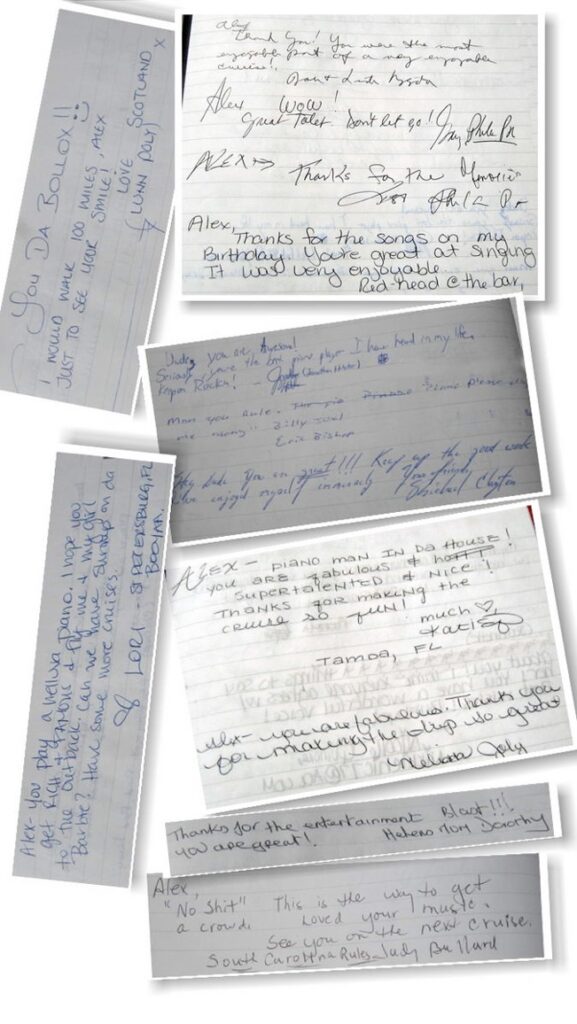 You DA BOLLOX!!
I WOULD WALK 100 MILES, ALEX
JUST TO SEE YOUR SMILE!
LOVE
(LUNN POLY) SCOTLAND X
Alex
Thank You! You were the most
enjoyable part of a very enjoyable
cruise!.
Alex WOW!
Great Talet. Don't let go!
ALEX Thanks for the Memories
Alex,
Thanks for the songs on my
Birthday. You're great at singing
It was very enjoyable
Red-head @ the bar,
Dude, you are Awesome!
Seriously, you're the best piano player I have heard in my life.
Rocks!
Man you Rule. please
me Billy Joel
Eric Bishop
Hey dude You are great!!! Keep up the good work
enjoyed myself immensely
Michael Clayton
Alex- You play a helluva piano. I hope you
get RICH & FAMOUS & fly me & my girl
to the outback. Can we have shrimp on da
Barbie? Have some more cruises.
LORI - ST PETERSBURG, FL
BOOYAH.
ALEX - PIANO MAN IN DA HOUSE!
YOU ARE FABULOUS & HOTTT
SUPERTALENTED & NICE!
THANKS FOR MAKING THE
CRUISE SO FUN!
much
TAMPA, FL
Alex- you are fabulous. Thank you
for making the trip so great
Melissa
Thanks for the entertainment Blast!!!
You are great! Mom Dorothy
Alex,
"No Shit" This is the way to get
a crowd. Loved your music.
See you on the next cruise.
South Carolina Rules Judy Bullard